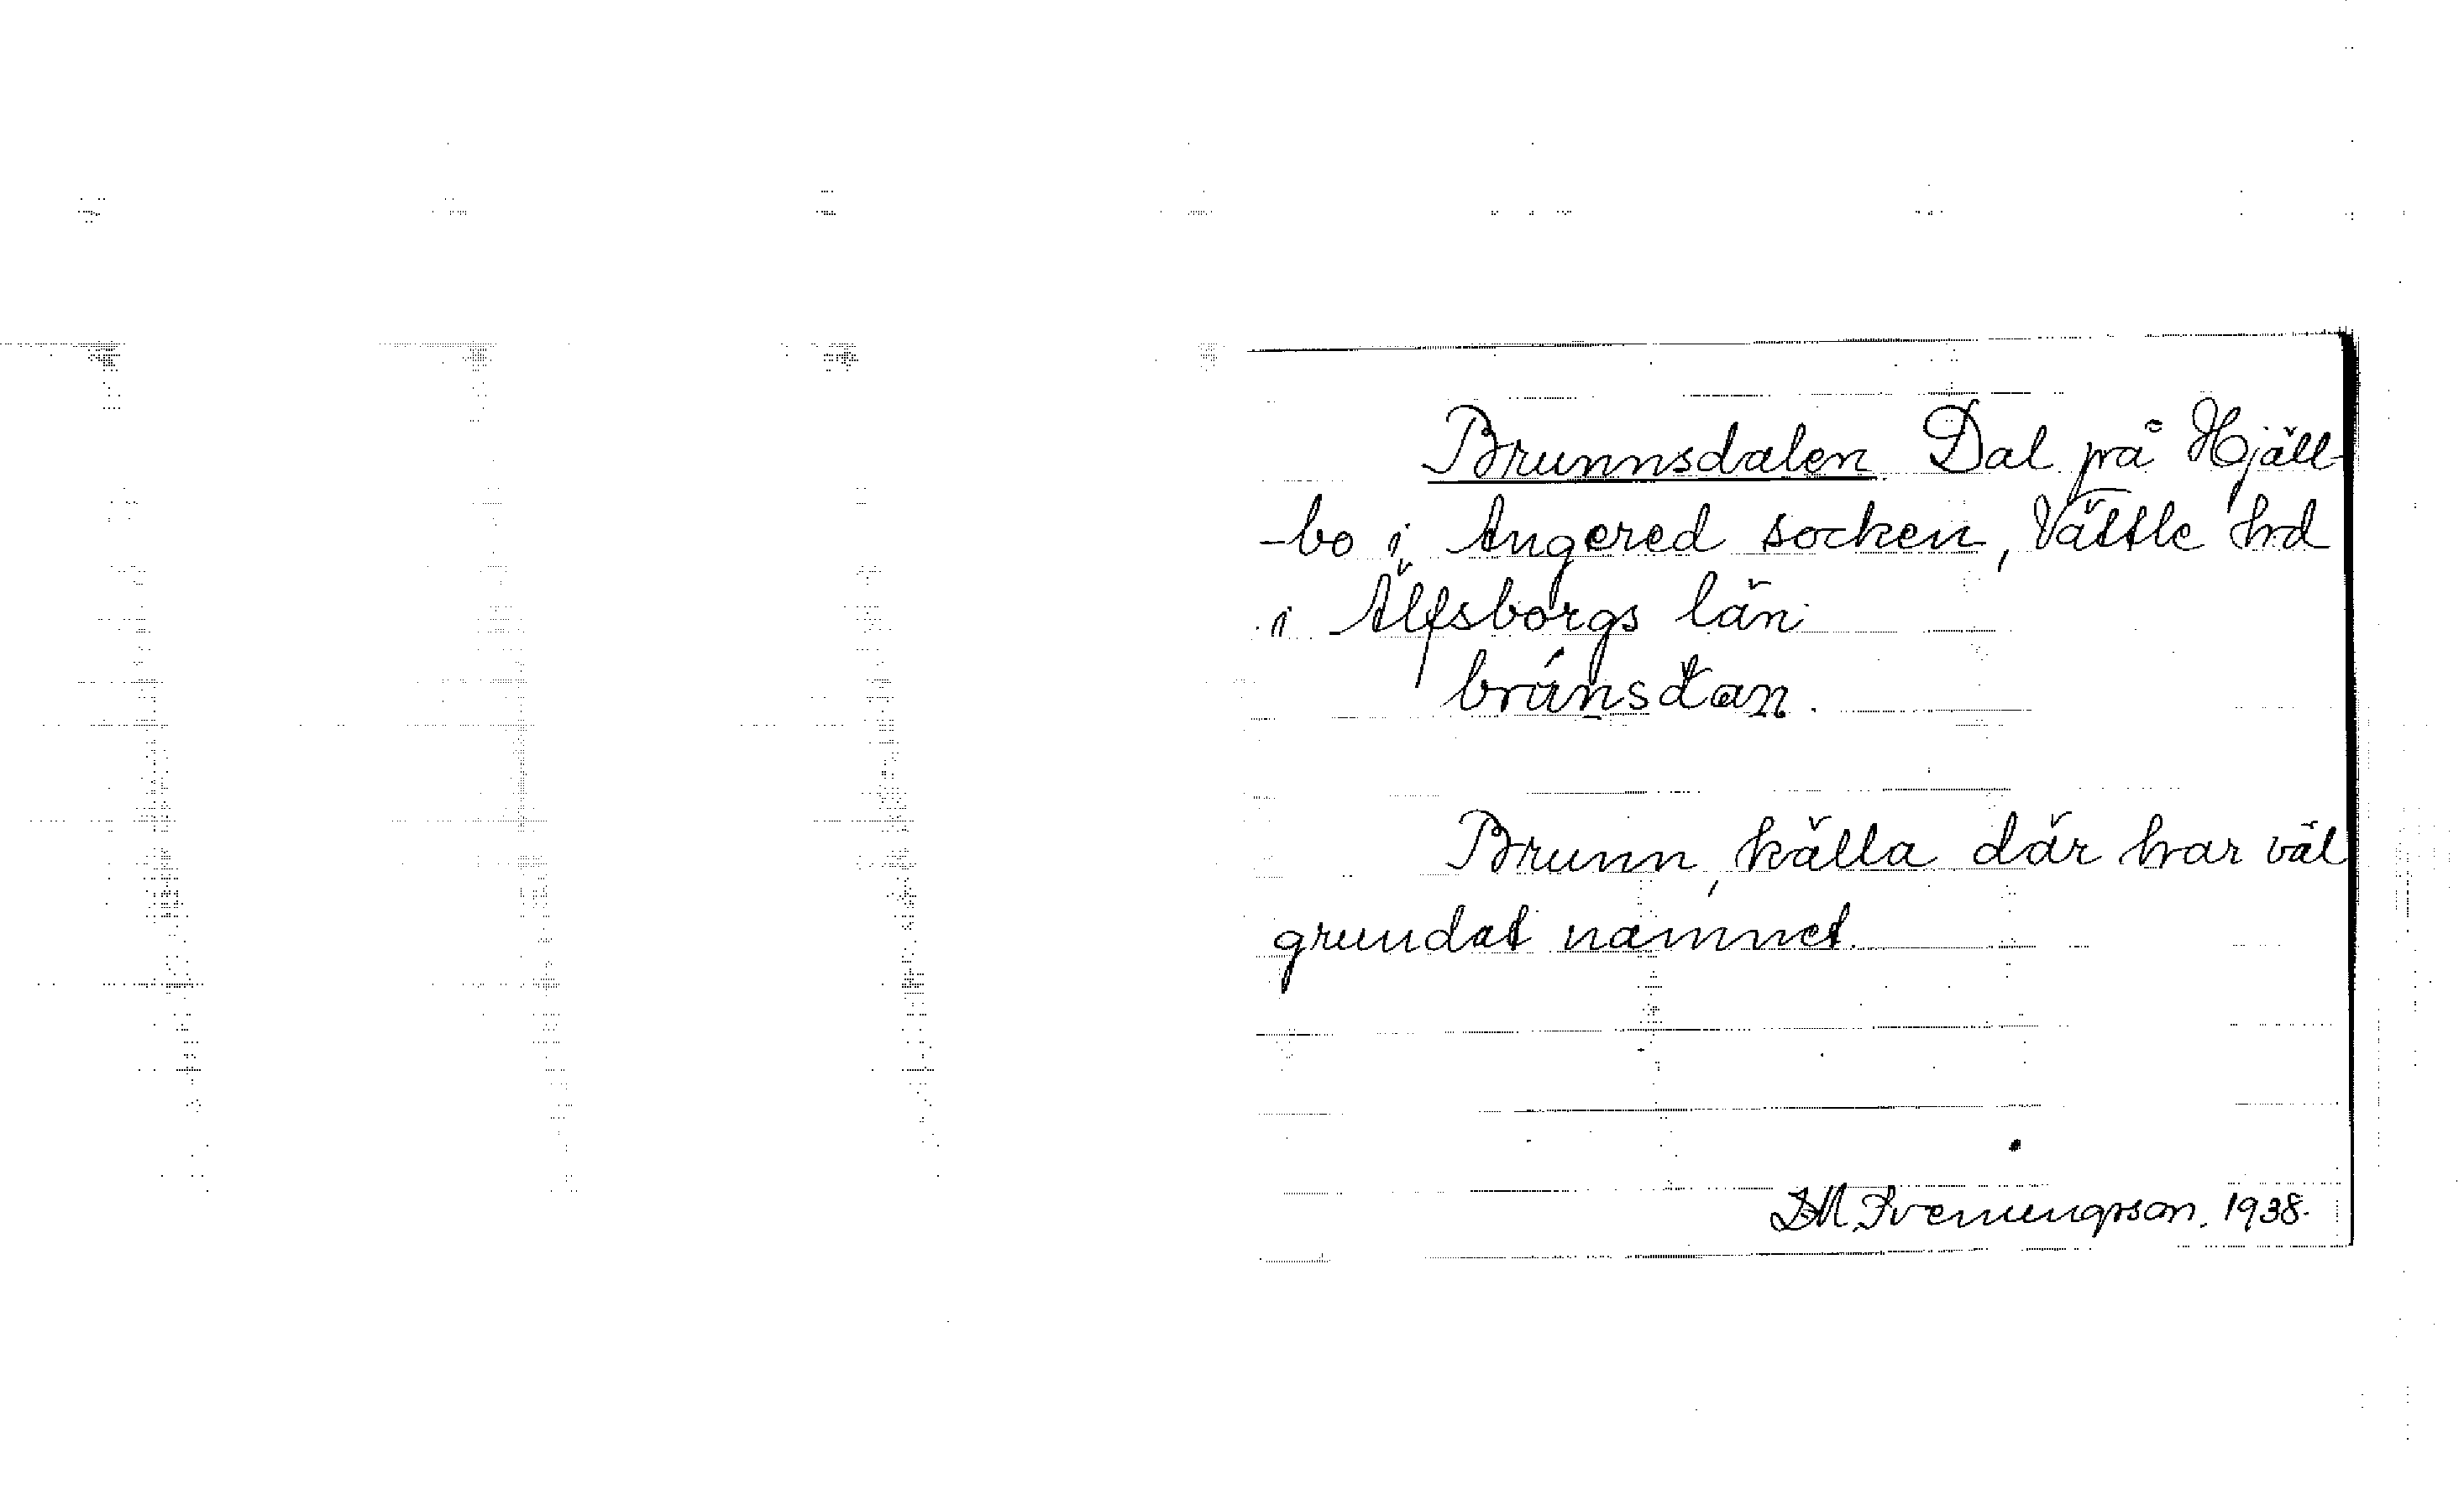 Brunnsdalen Dal på Hjäll-
-bo i Angered socken, Vättle hd
i Älfsborgs län
brúnsdan.
Brunn, källa där har väl
grundat namnet.
1938.